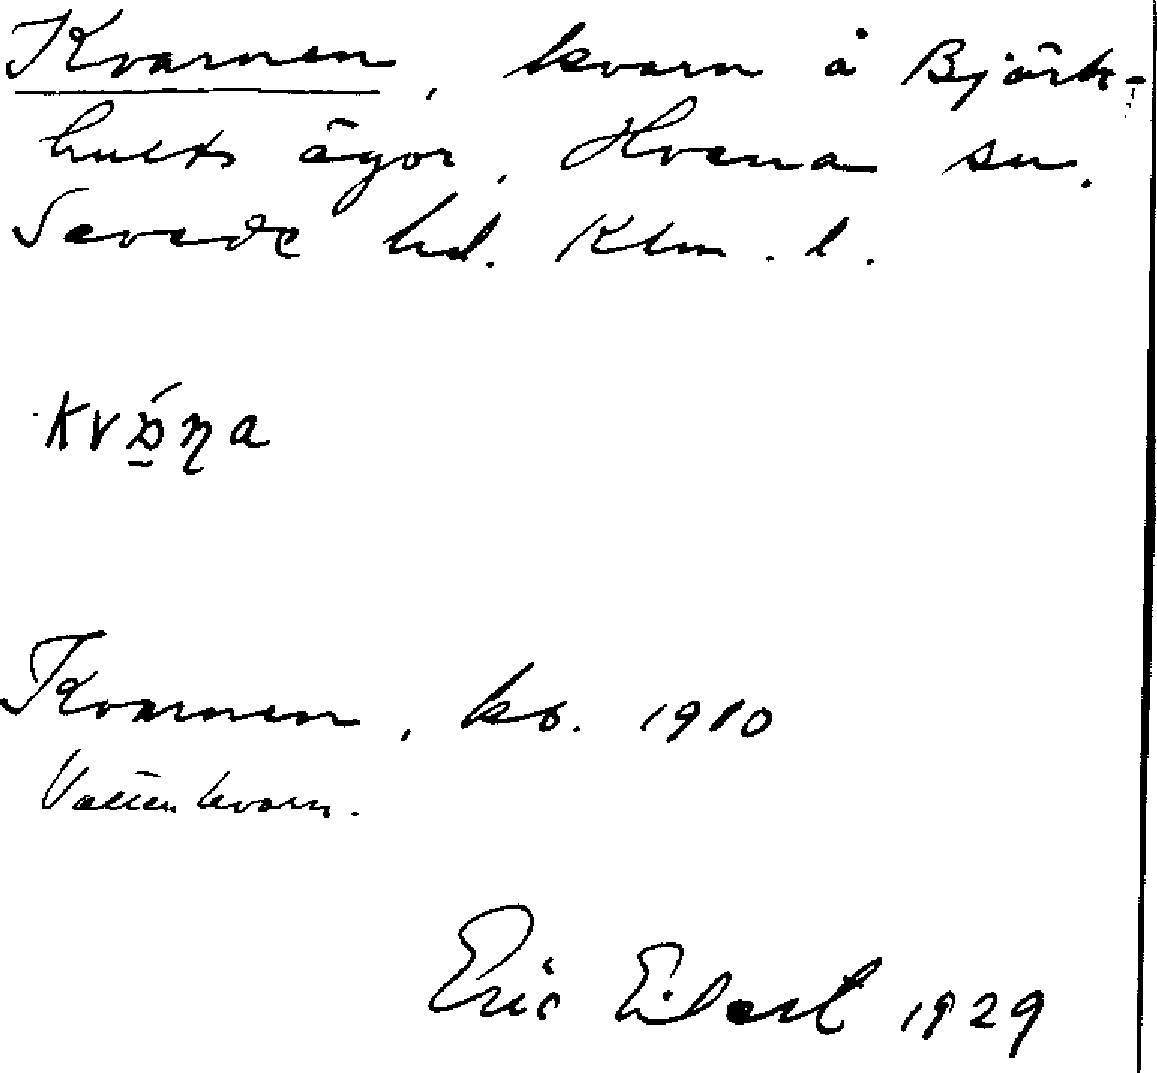 Kvarnen, kvarn å Björk-
hults ägor, Hvena sn.
Sevede hd. Klm. l.
Kvarnen, kb. 1910
Vattenkvarn.
Eric 1929